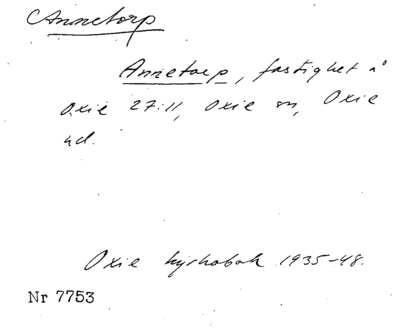 Annetorp
Annetorp, fastighet å
Oxie 27:11, Oxie sn, Oxie
hd.
Oxie kyrkobok 1935-48.
Nr 7753